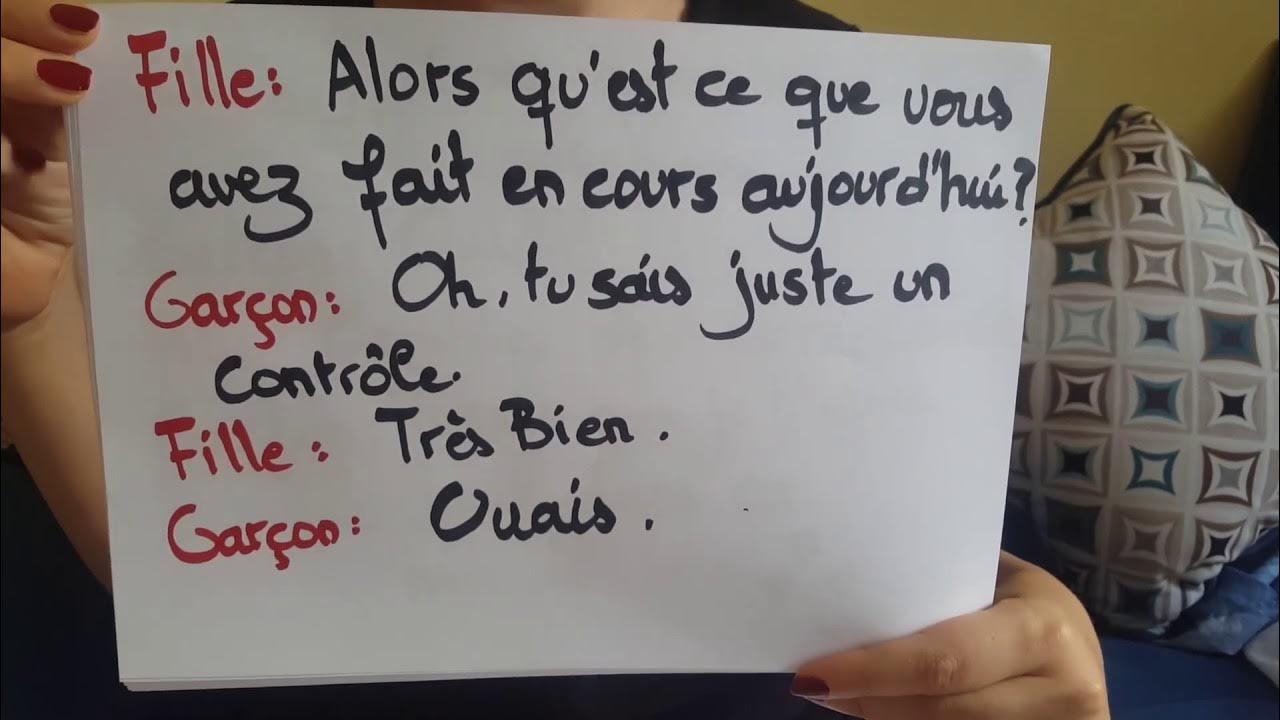 Fille: Alors qu'est ce que vous
avez fait en cours aujourd'hui?
Garçon: Oh, tu sais juste un
contrôle.
Fille: Très Bien.
Garçon: Ouais.